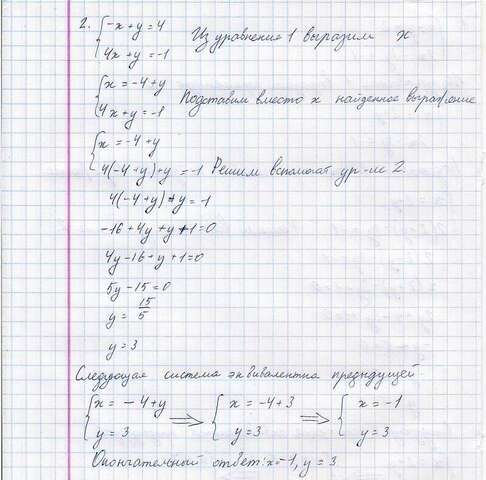 2. { -x + y = 4   Из уравнения 1 выразим x
{ 4x + y = -1
{ x = -4 + y
{ 4x + y = -1   Подставим вместо x найденное выражение
{ x = -4 + y
{ 4(-4 + y) + y = -1   Решим вспомогат. ур-ие 2.
4(-4 + y) + y = -1
-16 + 4y + y + 1 = 0
4y - 16 + y + 1 = 0
5y - 15 = 0
y = 15/5
y = 3
Следующая система эквивалентна предыдущей
{ x = -4 + y ⇒ { x = -4 + 3 ⇒ { x = -1
{ y = 3   { y = 3   { y = 3
Окончательный ответ: x = -1, y = 3